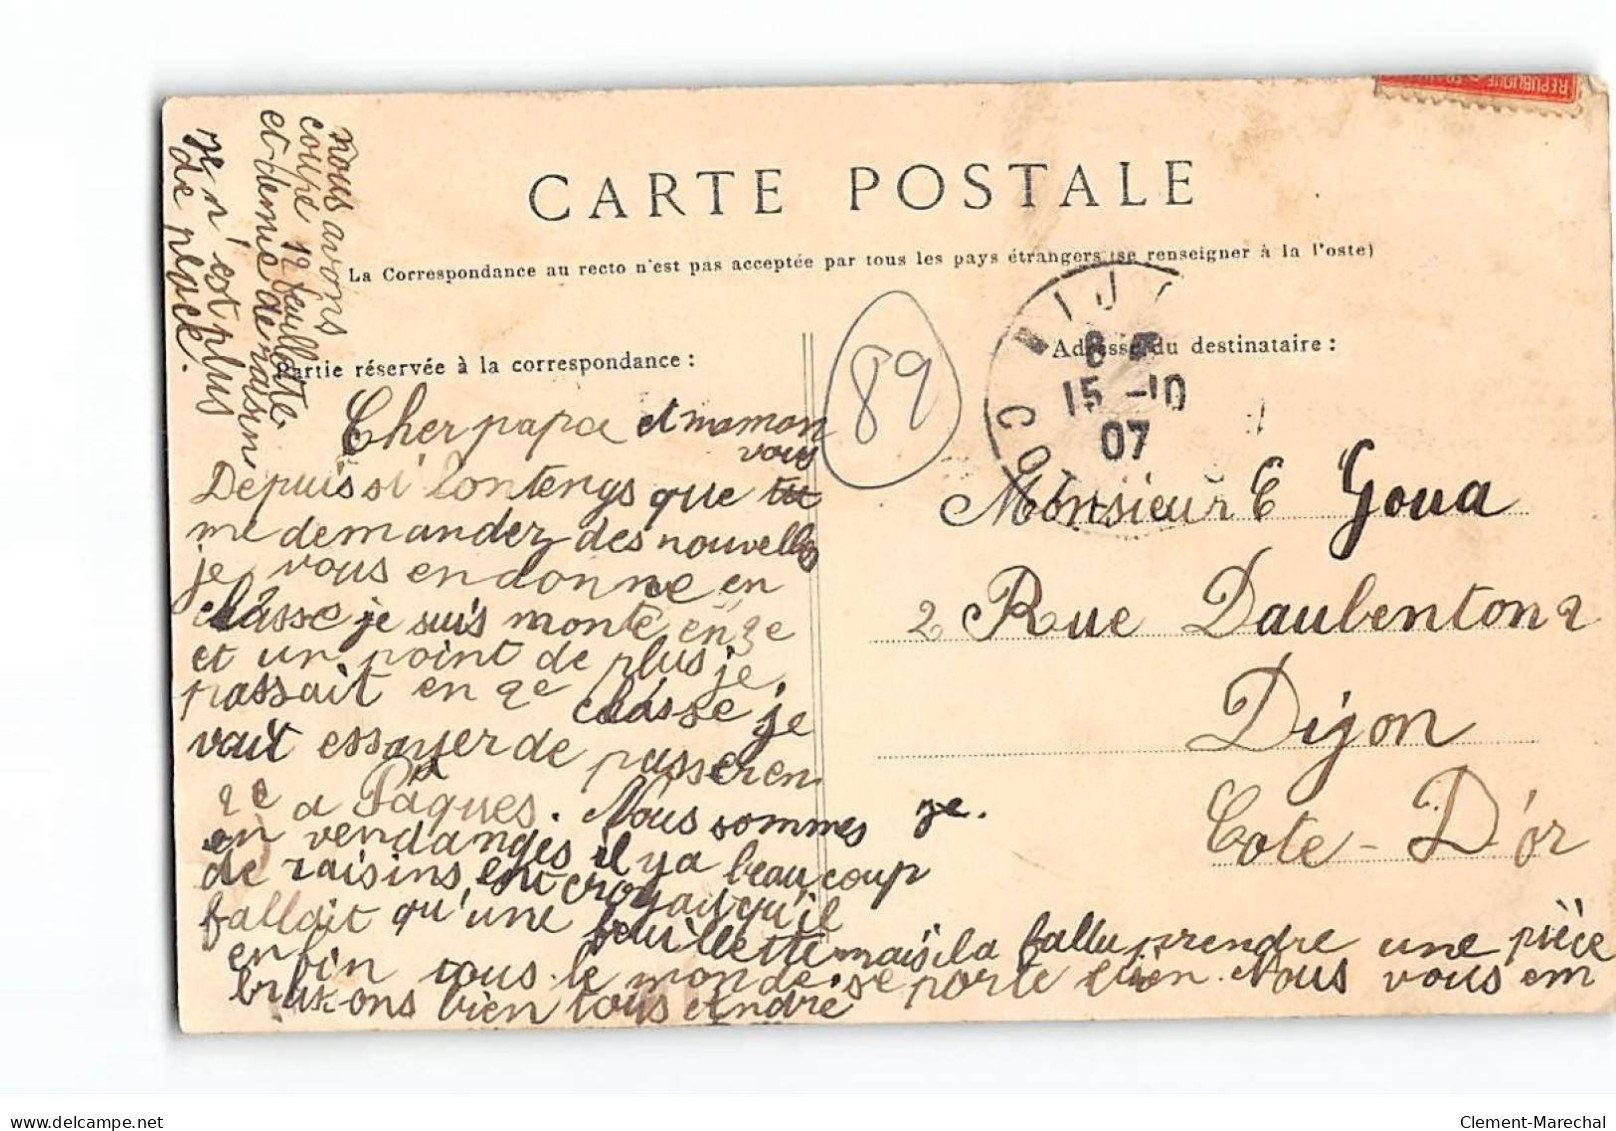 REPUBLIQUE
CARTE POSTALE
La Correspondance au recto n'est pas acceptée par tous les pays étrangers (se renseigner à la Poste)
Partie réservée à la correspondance :
Adresse du destinataire :
89
DIJ
15 -10
07
COT
Monsieur E Goua
2 Rue Daubenton 2
Dijon
Cote-D'or
Cher papa et maman
vous
Depuis si lontemgs que tu
me demandez des nouvelles
je vous en donne en
classe je suis monté en 3e
et un point de plus je
passait en 2e classe je
vait essayer de passer en
2e a Pâques. Nous sommes ye.
en vendanges il y a beaucoup
de raisins ent croyait qu'il
fallait qu'une feuillette mais il a fallu prendre une pièce
enfin tous le monde se porte bien. Nous vous em
brassons bien tous André
nous avons
coupé 12 feuillette
et demie de raisin
Il n'est plus
de place.
delcampe.net
Clement-Marechal